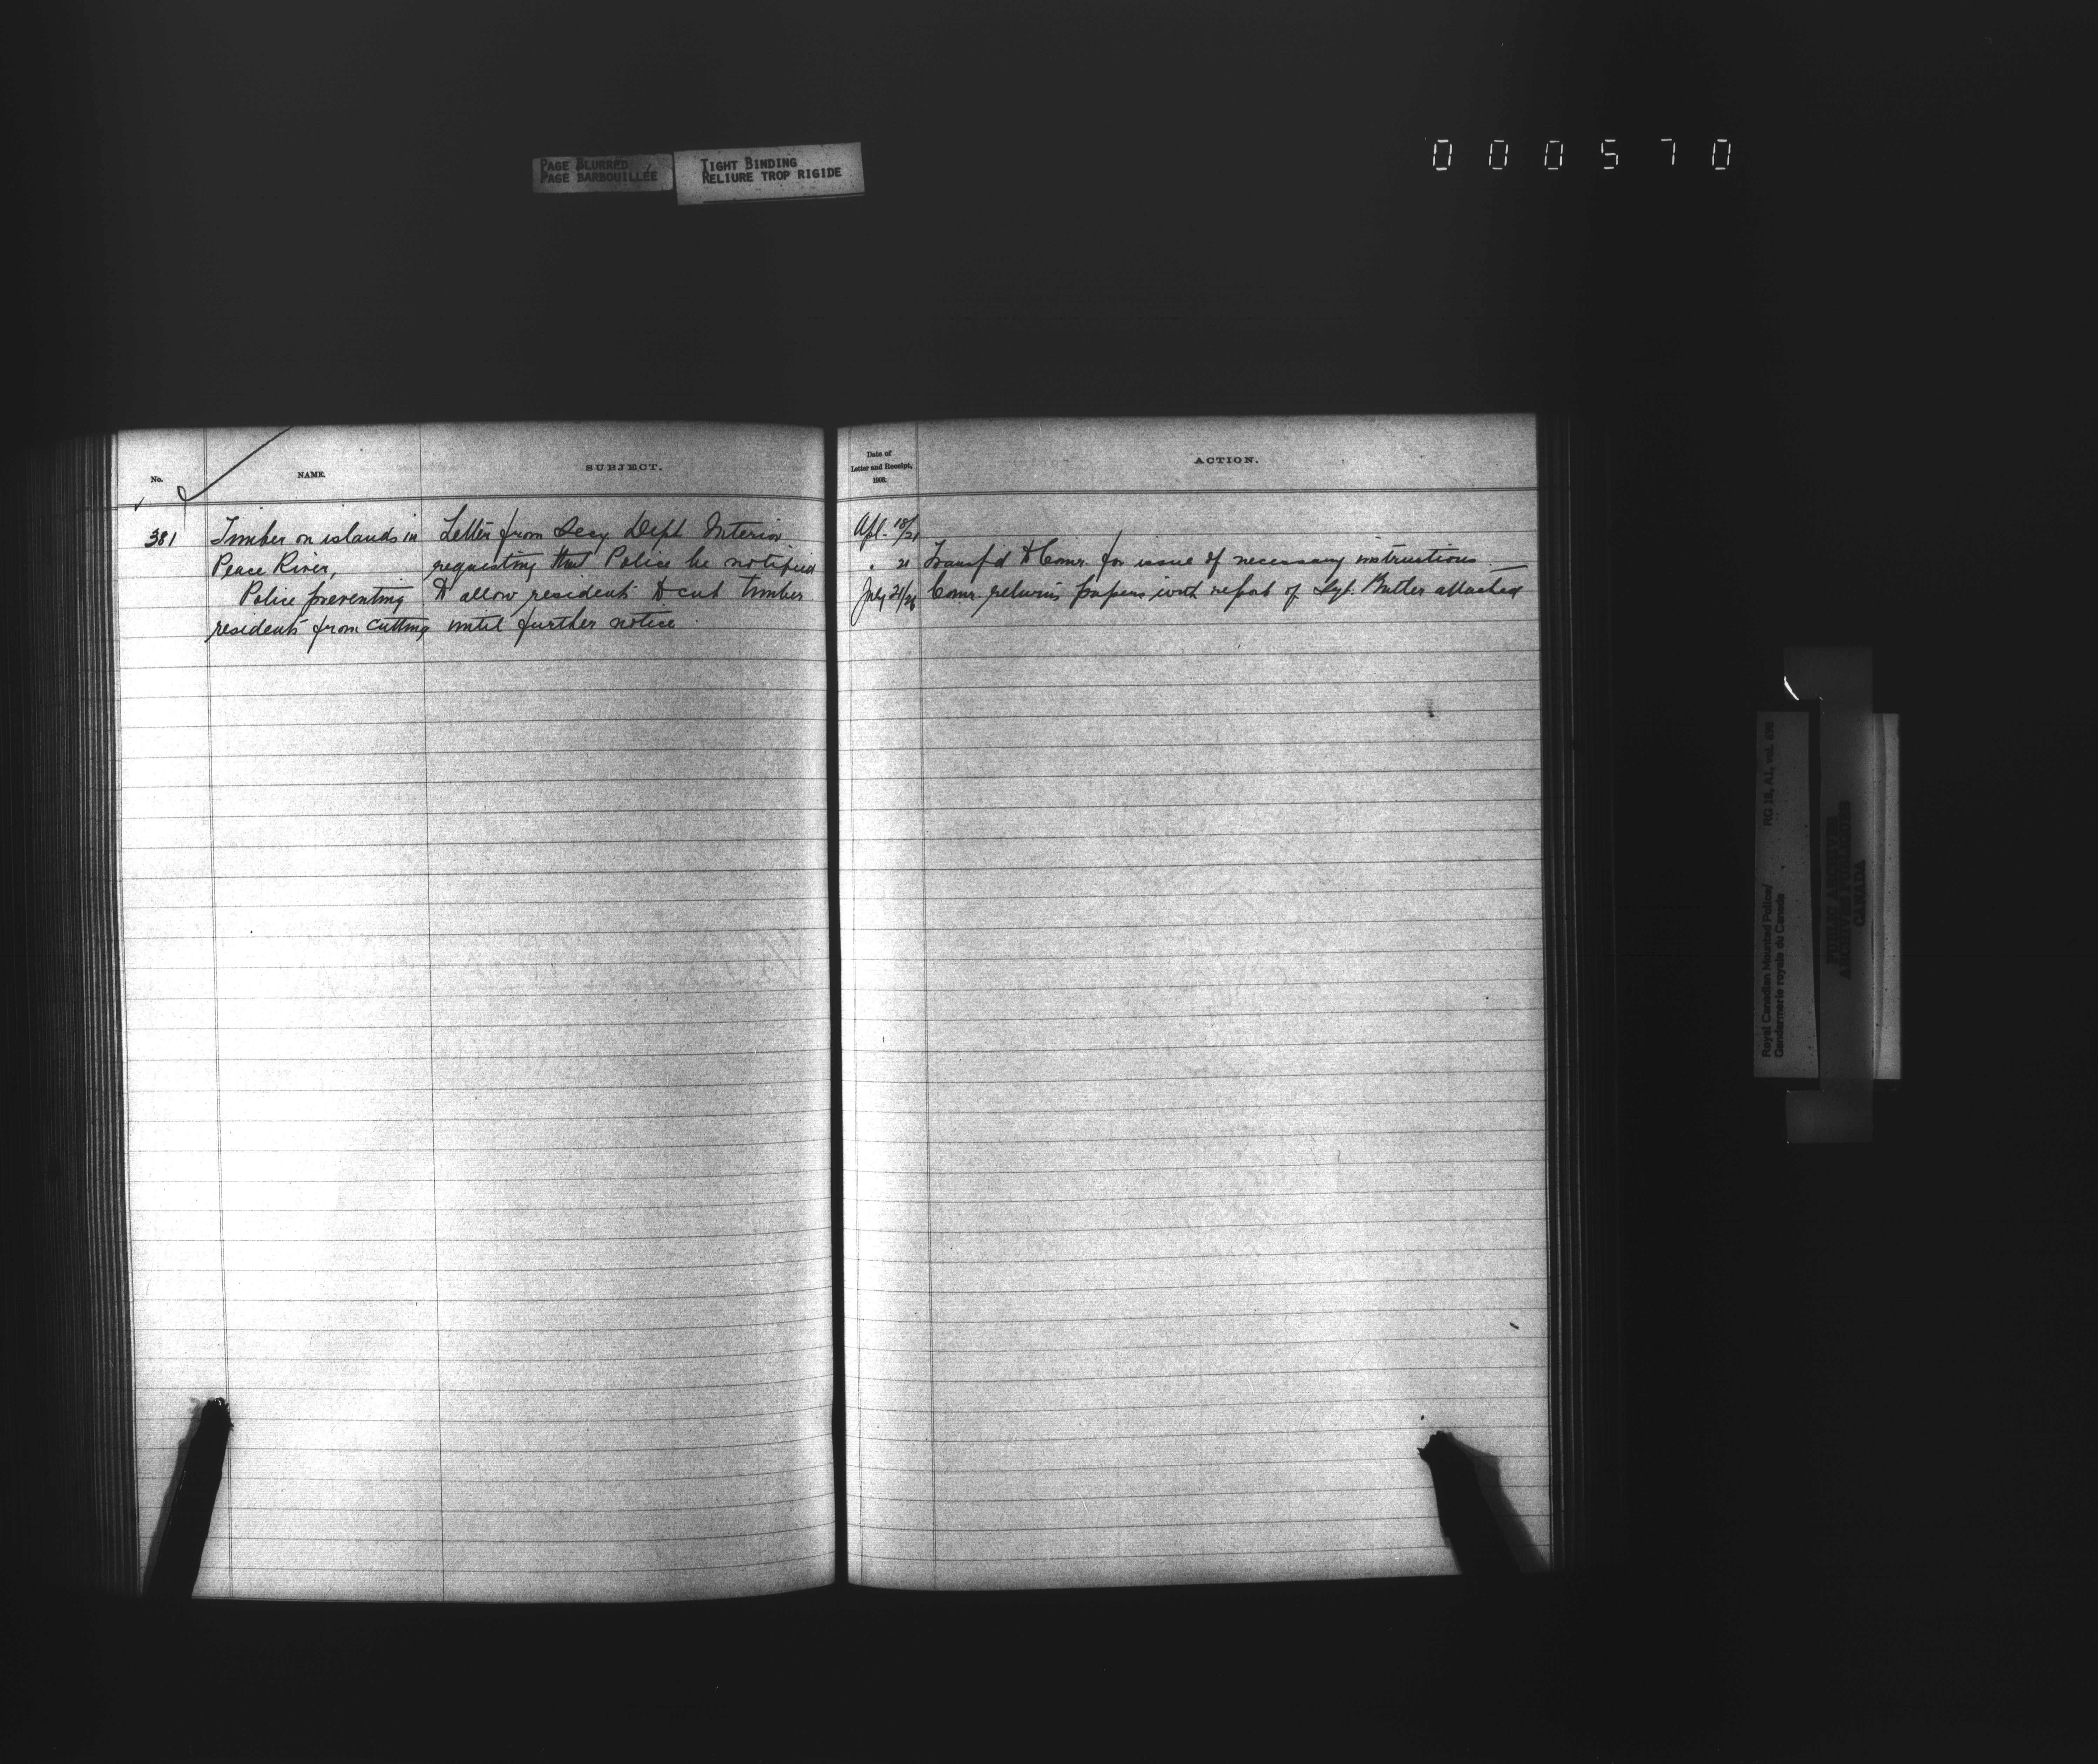 PAGE BLURRED
PAGE BARBOUILLÉE
TIGHT BINDING
RELIURE TROP RIGIDE
000570
No.
NAME.
SUBJECT.
381
Timber on islands in
Peace River,
Police preventing
residents from cutting
Letter from Secy Dept Interior
requesting that Police be notified
to allow residents to cut timber
until further notice.
Date of
Letter and Receipt,
ACTION.
Apl. 18/21
" 21 Transf'd to Comr. for issue of necessary instructions. —
July 21/26 Comr. returns papers with report of Sgt. Butler attached
Royal Canadian Mounted Police/
Gendarmerie royale du Canada
RG 18, A1, vol.
PUBLIC ARCHIVES
ARCHIVES PUBLIQUES
CANADA